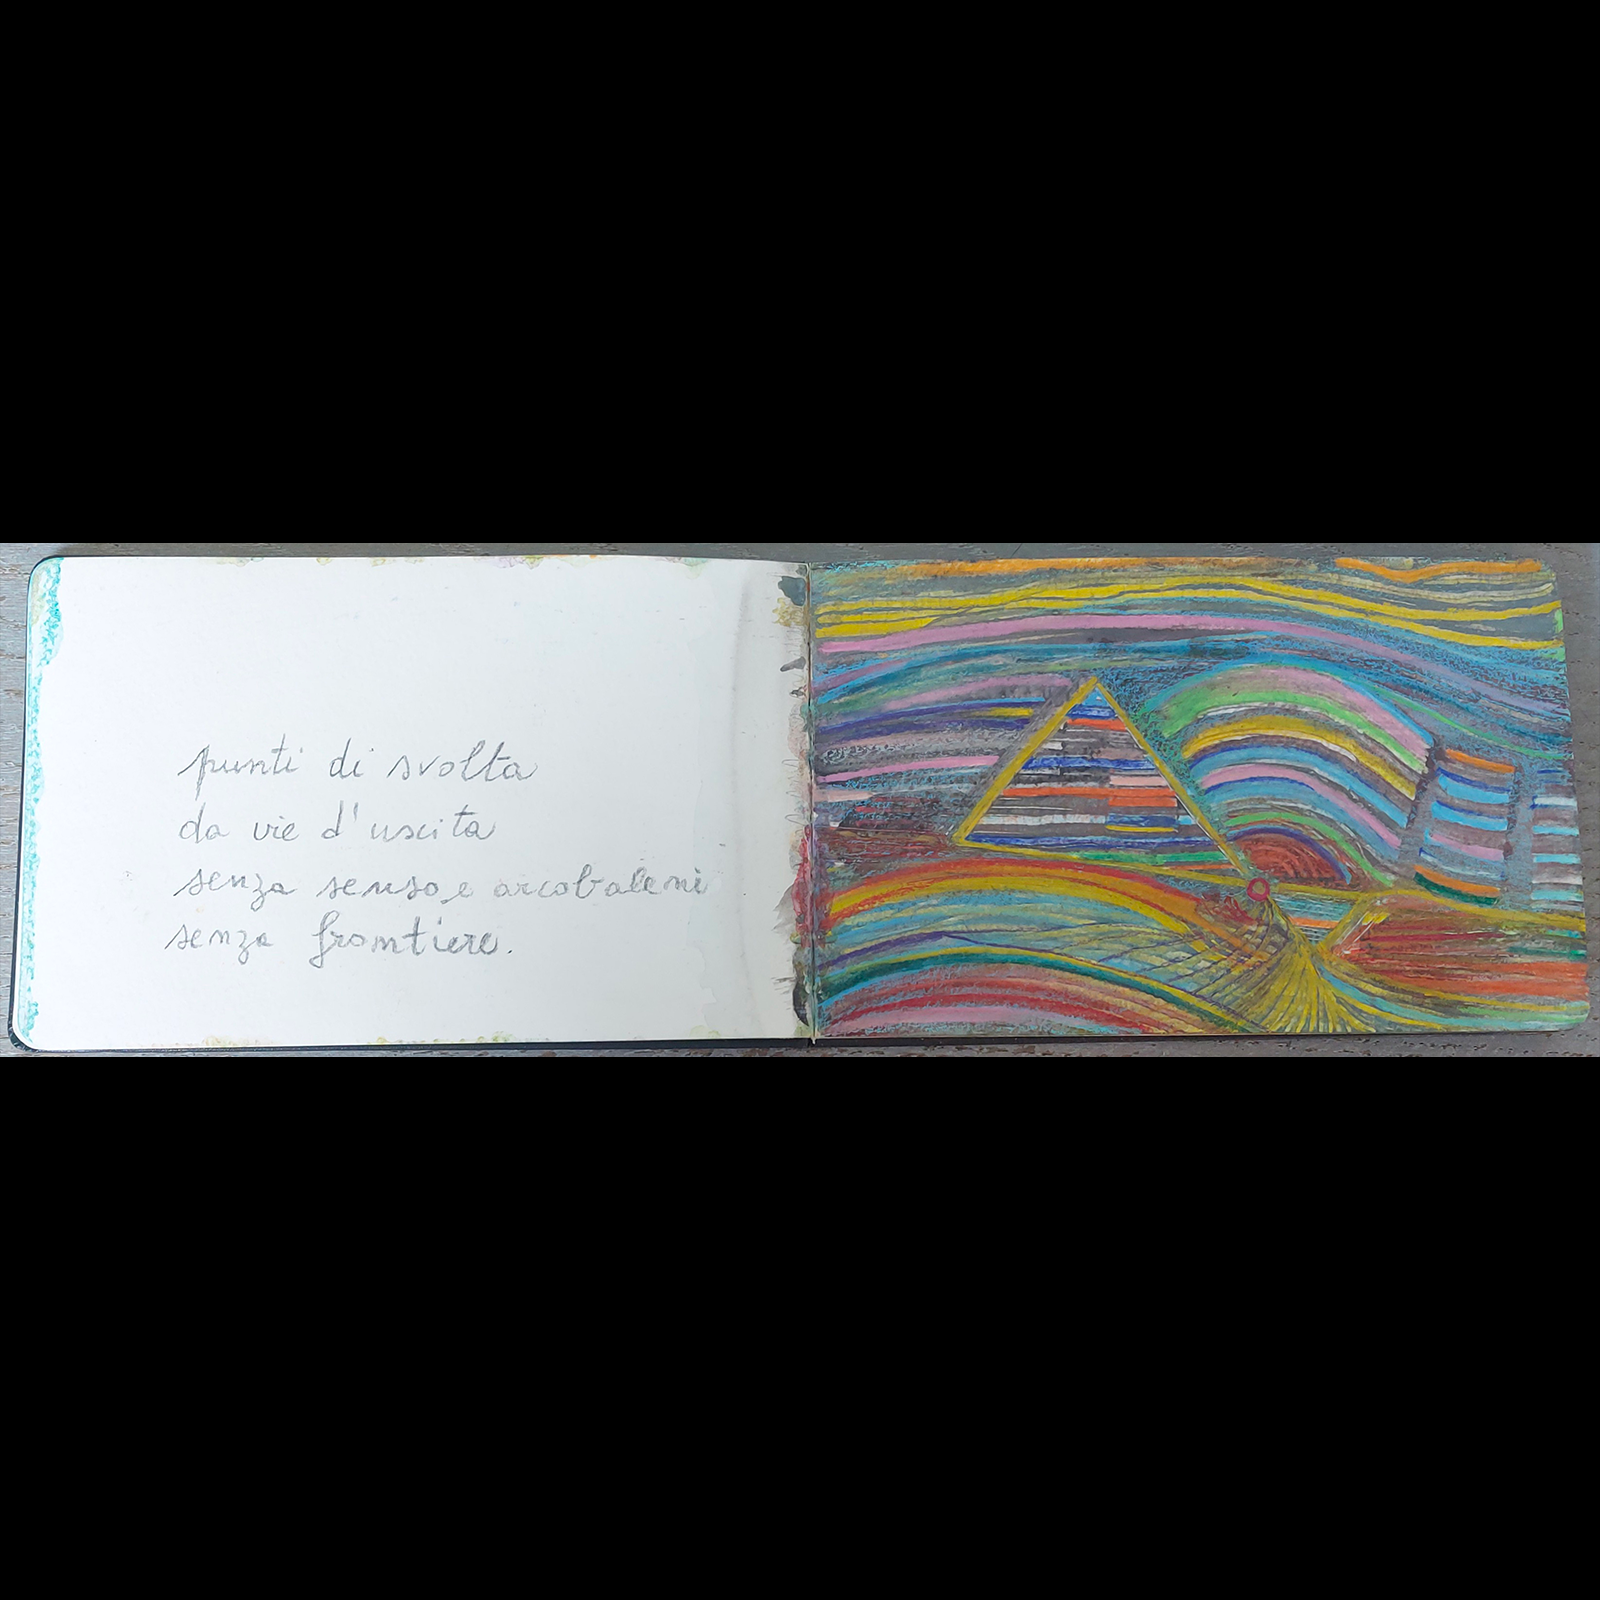 punti di svolta
da vie d'uscita
senza senso, e arcobaleni
senza frontiere.